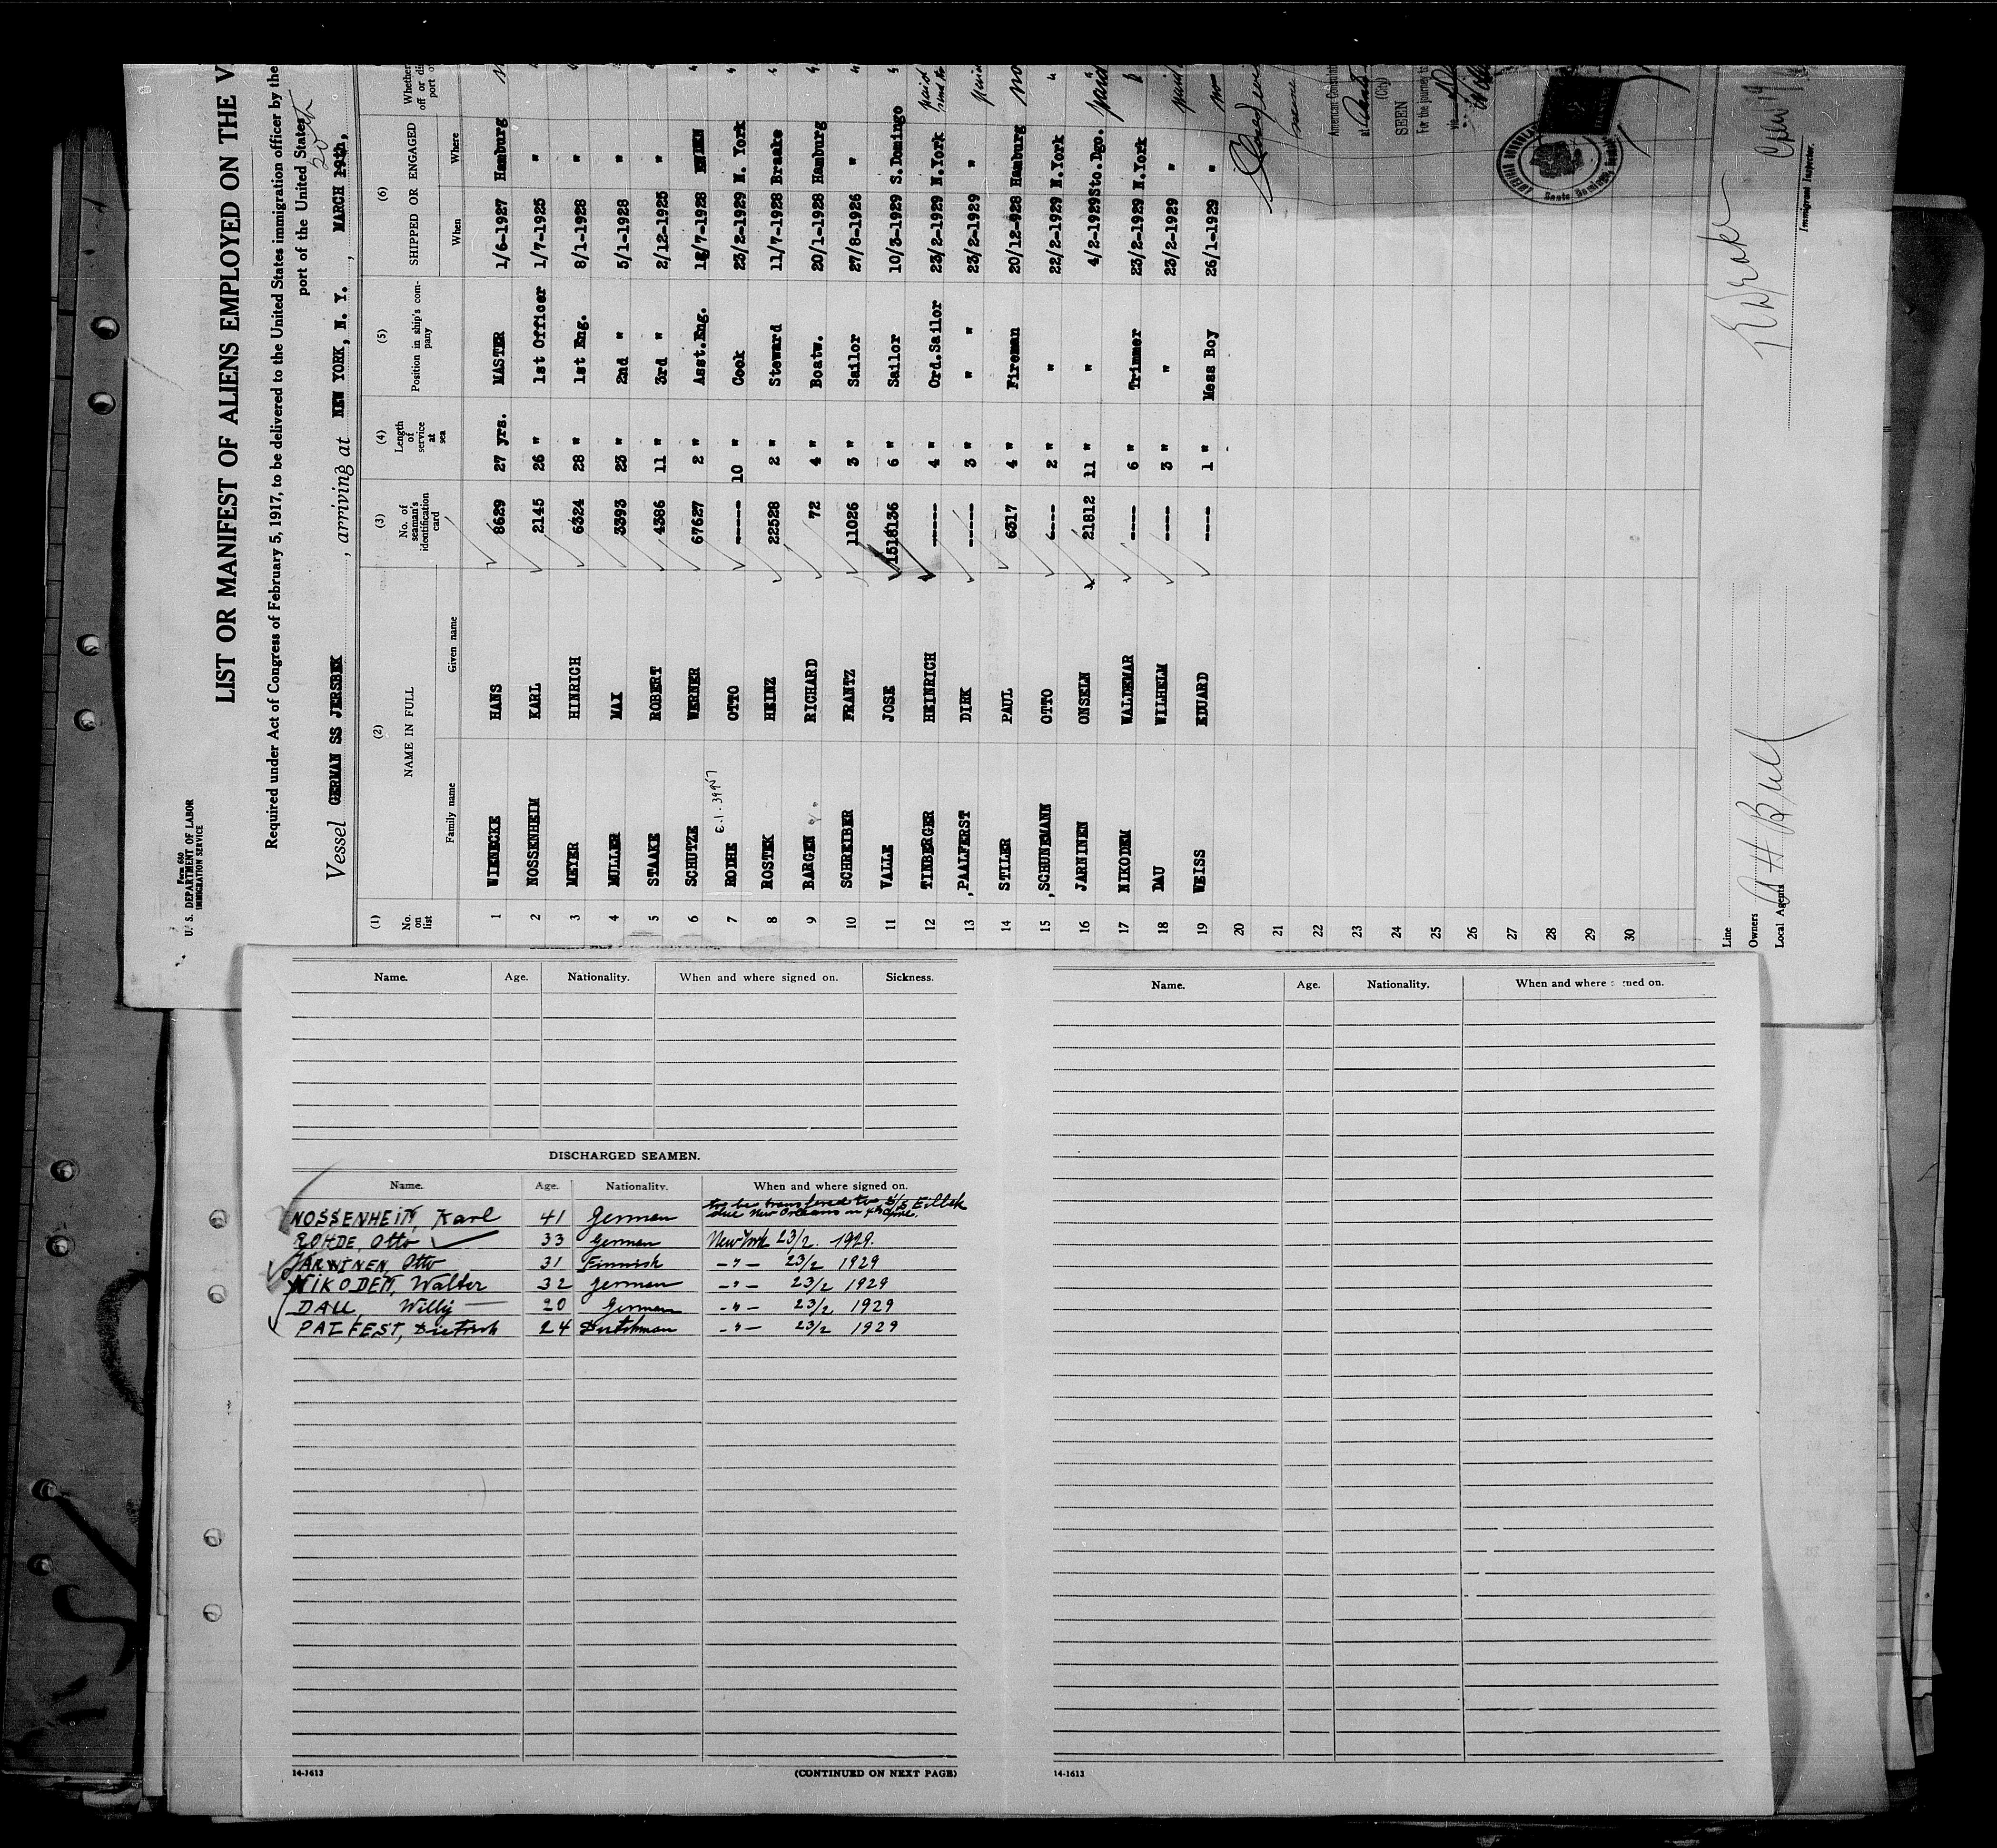 Form 680
U. S. DEPARTMENT OF LABOR
IMMIGRATION SERVICE
LIST OR MANIFEST OF ALIENS EMPLOYED ON THE V
Required under Act of Congress of February 5, 1917, to be delivered to the United States immigration officer by the
port of the United States
Vessel GERMAN SS JERSBEK , arriving at NEW YORK, N. Y. , MARCH 19th, 20th
(1) (2) (3) (4) (5) (6)
No. on list NAME IN FULL No. of seaman's identification card Length of service at sea Position in ship's company SHIPPED OR ENGAGED Whether
Family name Given name When Where
1 WIENECKE HANS 8629 27 yrs. MASTER 1/6-1927 Hamburg
2 NOSSENHEIM KARL 2145 26 " 1st Officer 1/7-1925 "
3 MEYER HINRICH 6324 28 " 1st Eng. 8/1-1928 "
4 MULLER MAX 3393 23 " 2nd " 5/1-1928 "
5 STAAKE ROBERT 4386 11 " 3rd " 2/12-1925 "
6 SCHUTZE WERNER 67627 2 " Asst.Eng. /7-1928
7 RODHE OTTO ----- 10 " Cook 23/2-1929 N. York
8 ROSTEK HEINZ 22528 2 " Steward 11/7-1928 Braake
9 BARGEN RICHARD 72 4 " Boatw. 20/1-1928 Hamburg
10 SCHREIBER FRANTZ 11026 3 " Sailor 27/8-1926 "
11 VALLE JOSE 1518136 6 " Sailor 10/3-1929 S. Domingo
12 TINBERGER HEINRICH ----- 4 " Ord.Sailor 23/2-1929 N.York paid
13 ,PAALFERST DIRK ----- 3 " " " 23/2-1929 "
14 STILER PAUL 6317 4 " Fireman 20/12-928 Hamburg no
15 ,SCHUNEMANN OTTO ---- 2 " " 22/2-1929 N.York "
16 JARNINEN ONSELN 21812 11 " " 4/2-1929 Sto.Dgo. paid
17 NIKODEM WALDEMAR ---- 6 " Trimmer 23/2-1929 N.York "
18 DAU WILHELM ---- 3 " " 23/2-1929 " paid
19 WEISS EDUARD ---- 1 " Mess Boy 26/1-1929 " no
20
21
22
23
24
25
26
27
28
29
30
American Consulate
at
(City)
SEEN
For the journey to
via
Line
Owners
Local Agents A H Bull
Immigrant Inspector.
Name. Age. Nationality. When and where signed on. Sickness.
DISCHARGED SEAMEN.
Name. Age. Nationality. When and where signed on.
NOSSENHEIM, Karl 41 German to be transfered to S/S Eilbek
due New Orleans on
ROHDE, Otto 33 German New York 23/2. 1929.
JARNINEN, Otto 31 Finnish -"- 23/2 1929
NIKODEM, Walter 32 German -"- 23/2 1929
DAU, Willy 20 German -"- 23/2 1929
PALFEST, Dietrich 24 Dutchman -"- 23/2 1929
14-1613 (CONTINUED ON NEXT PAGE)
Name. Age. Nationality. When and where signed on.
14-1613